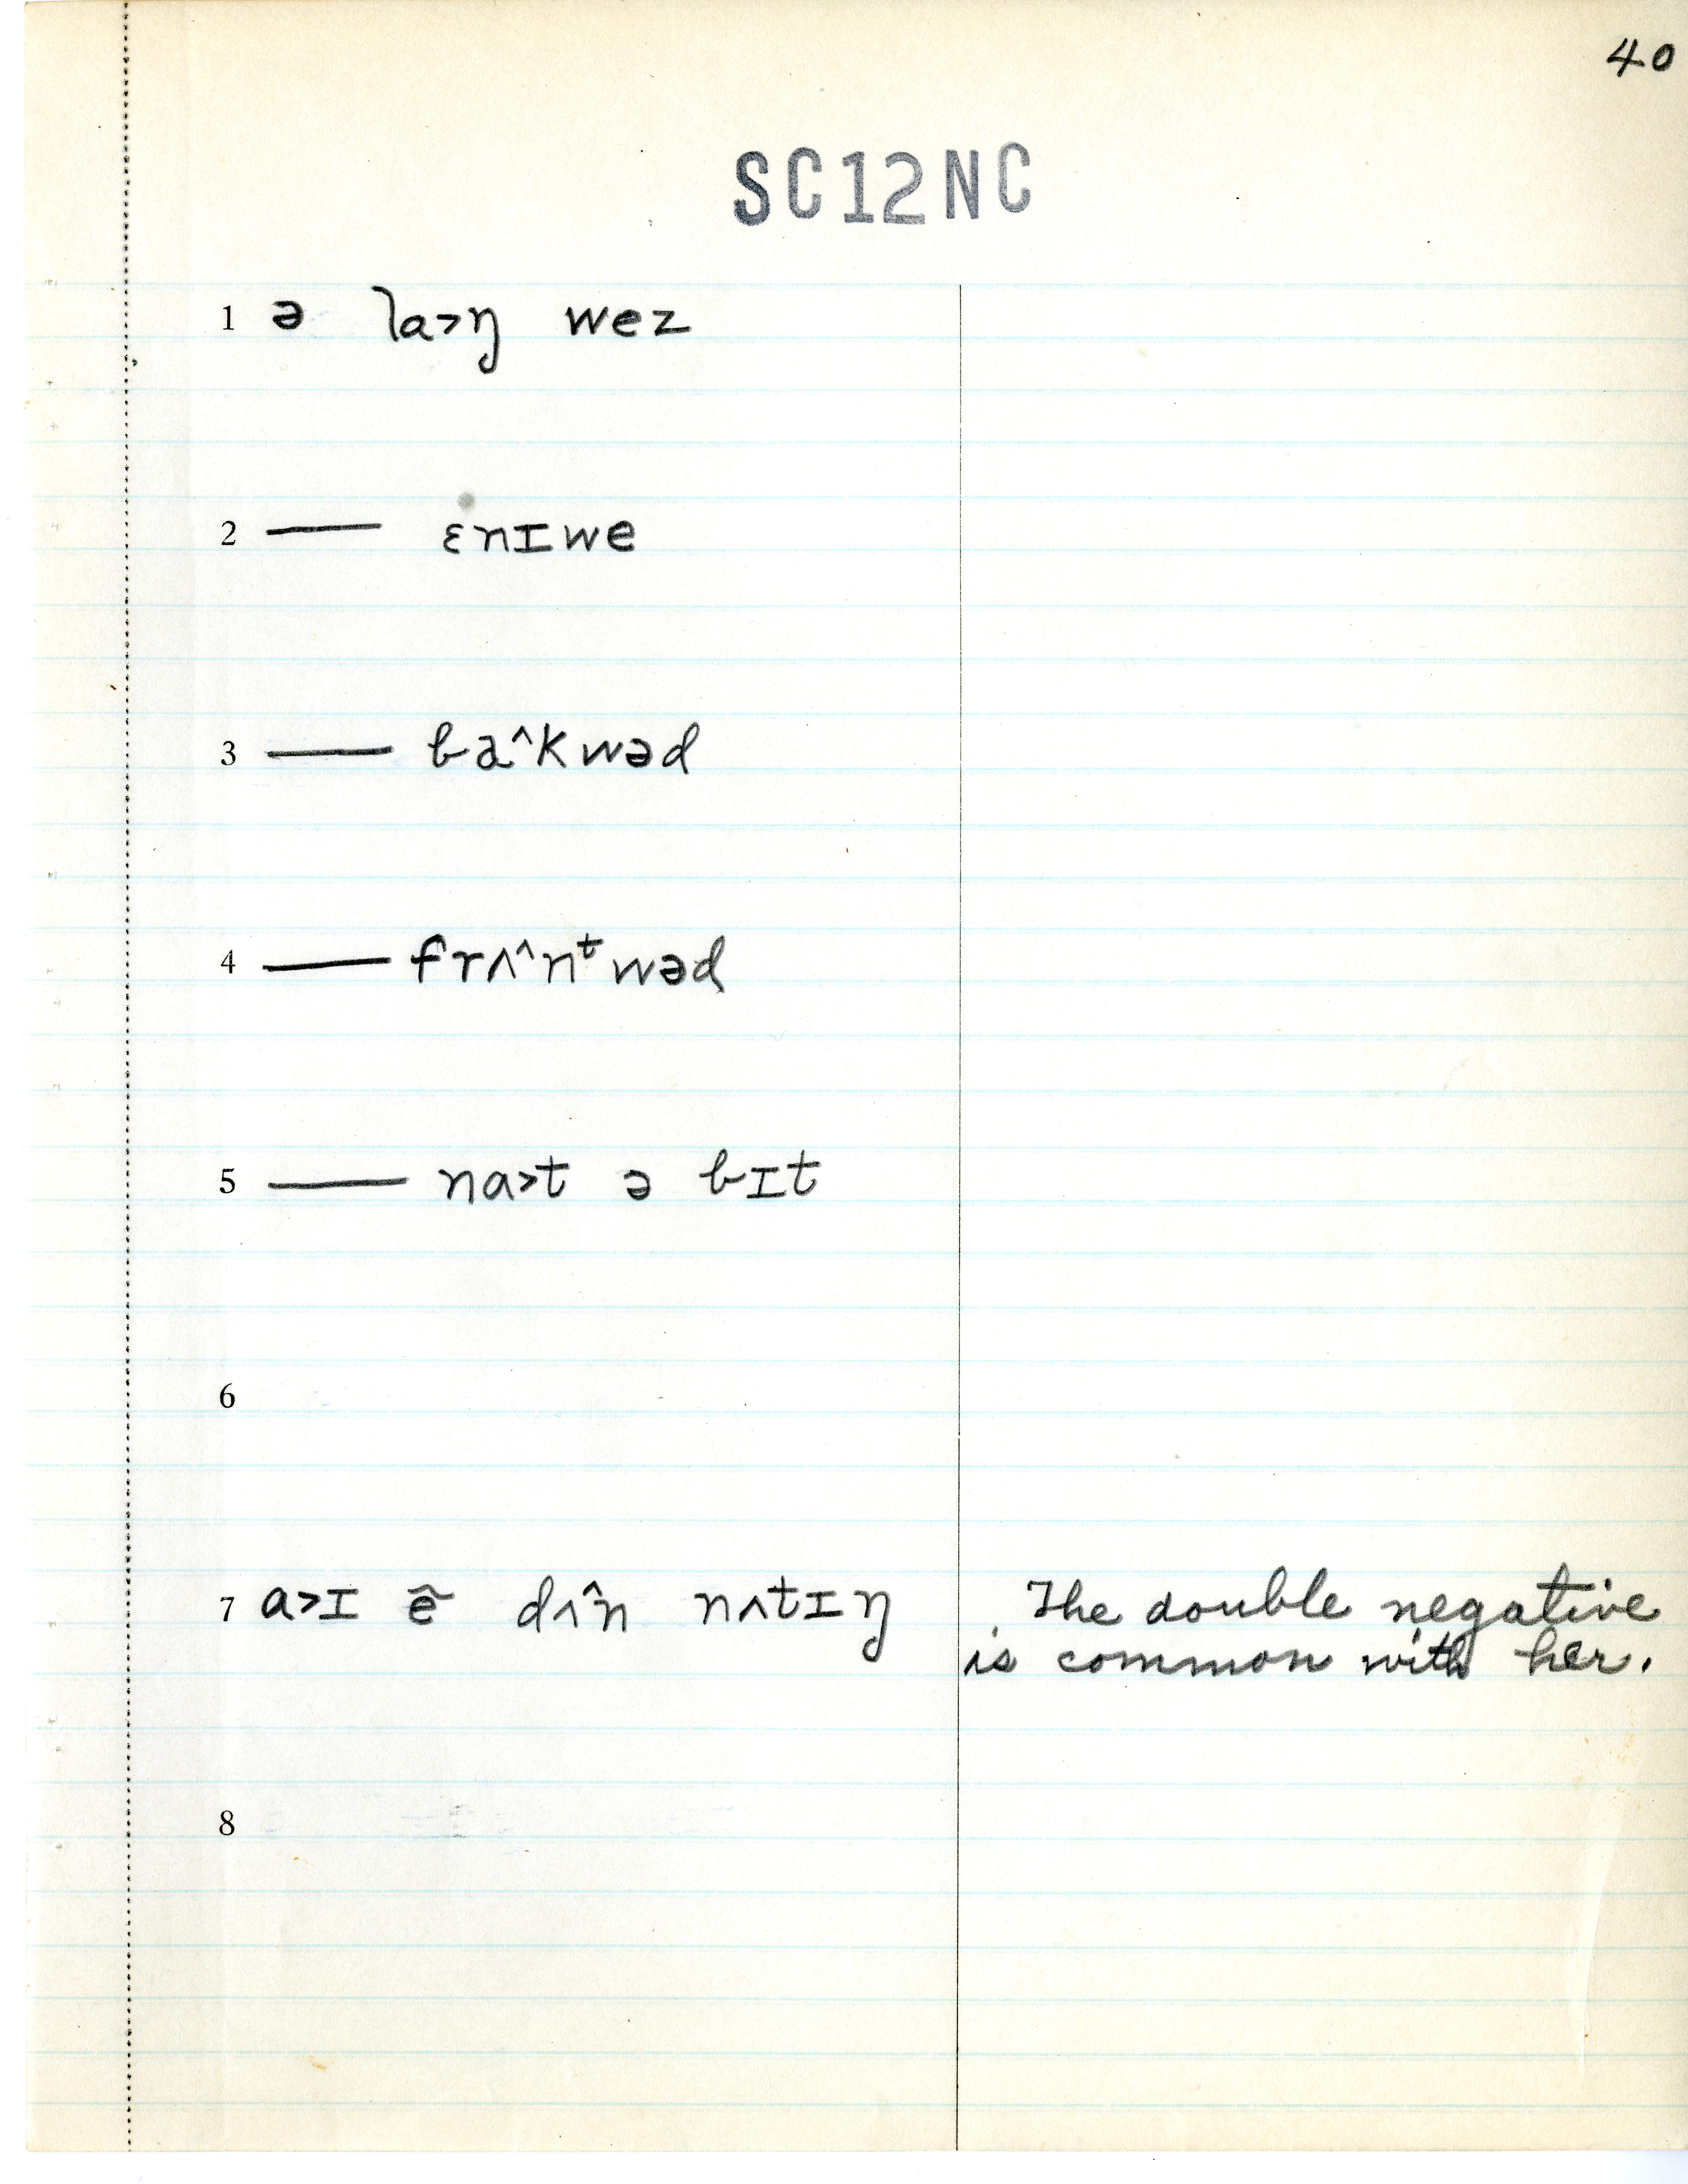 40
SC12NC
1 ə la>ŋ wez
2 — ɛnɪwe
3 — ba^kwəd
4 — frʌ^nᵗwəd
5 — na>t ə bɪt
6
7 a>ɪ ẽ^ dʌ^n nʌtɪŋ
The double negative
is common with her.
8